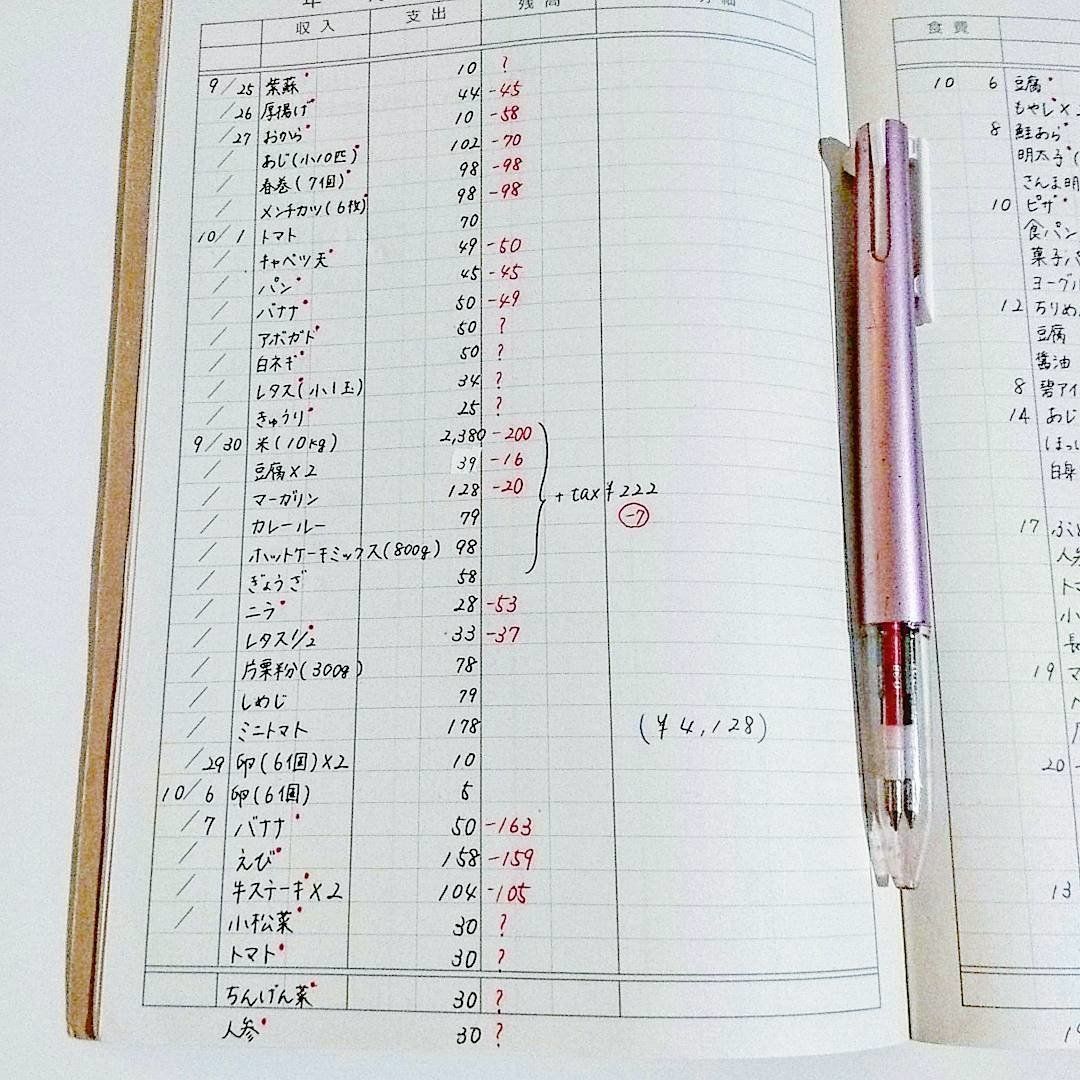 年
収入 支出 残高
9/25 紫蘇 10 ?
/26 厚揚げ 44 -45
/27 おから 10 -58
/ あじ(小10匹) 102 -70
/ 春巻(7個) 98 -98
/ メンチカツ(6枚) 98 -98
10/1 トマト 70
/ キャベツ天 49 -50
/ パン 45 -45
/ バナナ 50 -49
/ アボガド 50 ?
/ 白ネギ 50 ?
/ レタス(小1玉) 34 ?
/ きゅうり 25 ?
9/30 米(10kg) 2,380 -200
/ 豆腐×2 39 -16
/ マーガリン 128 -20
+tax¥222
/ カレールー 79
-7
/ ホットケーキミックス(800g) 98
/ ぎょうざ 58
/ ニラ 28 -53
/ レタス1/2 33 -37
/ 片栗粉(300g) 78
/ しめじ 79
/ ミニトマト 178
(¥4,128)
/29 卵(6個)×2 10
10/6 卵(6個) 5
/7 バナナ 50 -163
/ えび 158 -159
/ 牛ステーキ×2 104 -105
/ 小松菜 30 ?
トマト 30 ?
ちんげん菜 30 ?
人参 30 ?
食費
10 6 豆腐
もやし×
8 鮭あら
明太子(
さんま明
10 ピザ
食パン
菓子パ
ヨーグル
12 ちりめ
豆腐
醤油
8 碧アイ
14 あじ
ほっ
白身
17 ぶ
人参
トマ
小
長
19 マ
20
13